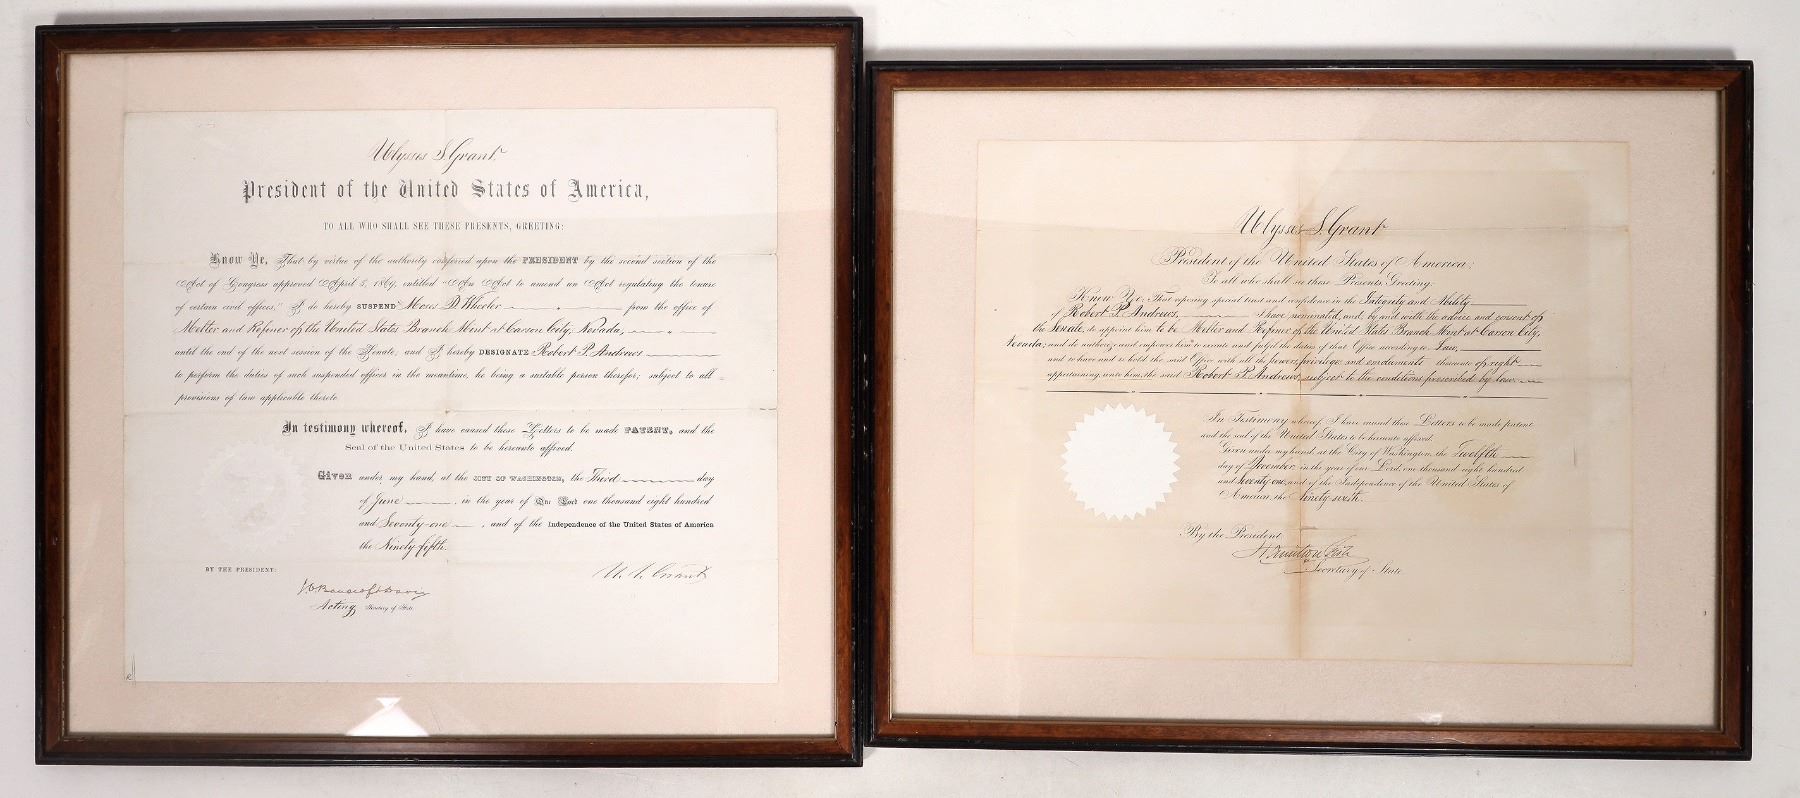 Ulysses S. Grant
President of the United States of America,
TO ALL WHO SHALL SEE THESE PRESENTS, GREETING:
Know Ye, That by virtue of the authority conferred upon the PRESIDENT by the second section of the
Act of Congress approved April 5, 1869, entitled "An Act to amend an Act regulating the tenure
of certain civil offices," I do hereby SUSPEND Moses D. Wheeler from the office of
Melter and Refiner of the United States Branch Mint at Carson City, Nevada,
until the end of the next session of the Senate; and I hereby DESIGNATE Robert P. Andrews
to perform the duties of such suspended officer in the meantime, he being a suitable person therefor; subject to all
provisions of law applicable thereto.
In testimony whereof, I have caused these Letters to be made PATENT, and the
Seal of the United States to be hereunto affixed.
Given under my hand, at the CITY OF WASHINGTON, the Third day
of June, in the year of Our Lord one thousand eight hundred
and Seventy-one, and of the Independence of the United States of America
the Ninety-fifth.
BY THE PRESIDENT:
U. S. Grant
J. C. Bancroft Davis
Acting Secretary of State.
Ulysses S. Grant
President of the United States of America;
To all who shall see these Presents, Greeting:
Know Ye; That reposing special trust and confidence in the Integrity and Ability
of Robert P. Andrews, I have nominated, and, by and with the advice and consent of
the Senate, do appoint him to be Melter and Refiner of the United States Branch Mint at Carson City,
Nevada; and do authorize and empower him to execute and fulfil the duties of that Office according to Law,
and to have and to hold the said Office with all the powers, privileges and emoluments thereunto of right
appertaining, unto him, the said Robert P. Andrews, subject to the conditions prescribed by law.
In Testimony whereof, I have caused these Letters to be made patent
and the seal of the United States to be hereunto affixed.
Given under my hand, at the City of Washington, the Twelfth
day of December, in the year of our Lord, one thousand eight hundred
and Seventy one, and of the Independence of the United States of
America, the Ninety-sixth.
By the President,
Hamilton Fish
Secretary of State.